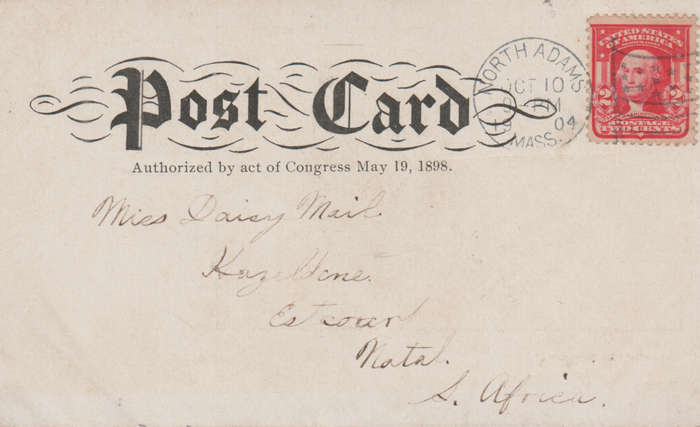 Post Card
Authorized by act of Congress May 19, 1898.
NORTH ADAMS
OCT 10
PM
04
MASS.
UNITED STATES
OF AMERICA
2 2
POSTAGE
TWO CENTS
Miss Daisy Mail
Hazeldene.
Estcourt
Natal.
S. Africa.